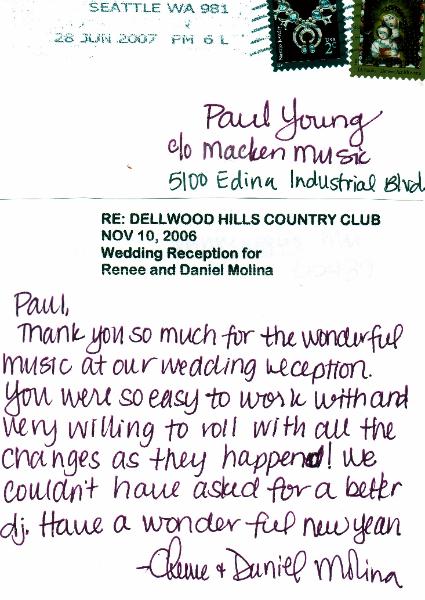 SEATTLE WA 981
28 JUN 2007 PM 6 L
USA
2¢
Paul Young
c/o Macken Music
5100 Edina Industrial Blvd
RE: DELLWOOD HILLS COUNTRY CLUB
NOV 10, 2006
Wedding Reception for
Renee and Daniel Molina
Paul,
Thank you so much for the wonderful
music at our wedding reception.
You were so easy to work with and
very willing to roll with all the
changes as they happend! We
couldn't have asked for a better
dj. Have a wonderful new year
& Daniel Molina